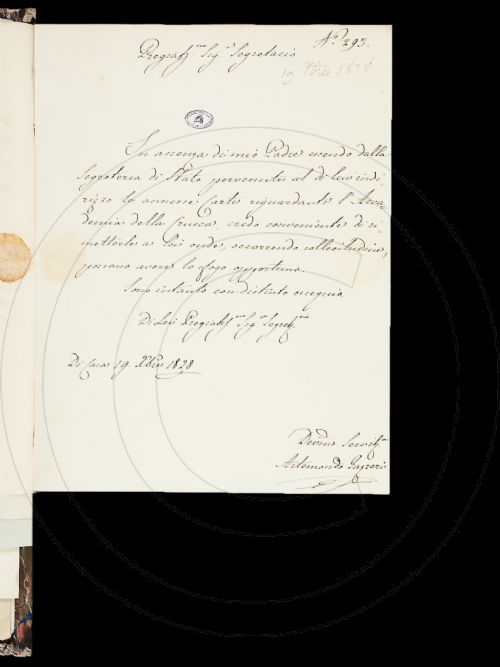 N.° 293.
Pregiat.mo Sig.r Segretario
19 Xbre 1828
In assenza di mio Padre essendo dalla
Segreteria di Stato pervenute al di lui indi-
rizzo le annesse carte riguardanti l'Acca-
demia della Crusca, credo conveniente di ri-
metterle a Lei onde, occorrendo sollecitudine,
possano avere lo sfogo opportuno.
Sono intanto con distinto ossequio
Di Lei Pregiat.mo Sig.r Segret.rio
Di Casa 19. Xbre 1828
Devmo Servit.e